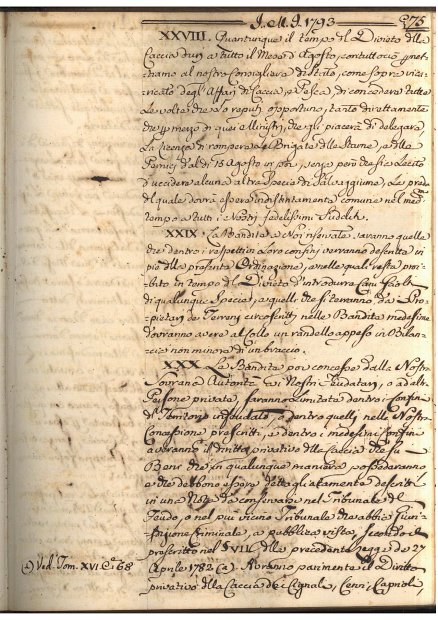 I. M. I. 1793 275
XXVIII. Quantunque il tempo del Divieto della
Caccia duri a tutto il Mese d'Agosto, contuttociò
al nostro Consigliere di Stato, come sopra
degli Affari di Caccia, e Pesca, di concedere tutte
Le volte che reputi opportuno, tanto direttamente
che mezzo di quei Ministri, che gli piacerà di delegare,
La licenza di rompere le Brigate delle Starne, e delle
Pernici dal dì 15 Agosto in poi, senza però che sia lecito
d'uccidere alcuna altra specie di Salvaggiume, Le
del quale dovrà essere indistintamente comune nel med.
tempo a tutti i Nostri fedelissimi Sudditi.
XXIX. La Bandita a Noi riservate, saranno quelle
che dentro i rispettivi Loro confini verranno descritte in
pie della presente Ordinazione, e nelle quali resta proi-
bito in tempo del Divieto d'introdurre Cani
di qualunque Specie, e quelli che si terranno da Pro-
prietari dei Terreni circoscritti nelle Bandite medesime
dovranno avere al collo un randello appeso in Bilan-
cia non minore di un braccio.
XXX. Le Bandite poi concesse dalla Nostra
Sovrana Autorità ai Nostri Feudatari, o ad altre
Persone private, saranno limitate dentro i confini
di Territorio infeudato, o dentro quelli nelle Nostre
Concessione prescritti, e dentro i medesimi confini
averanno il diritto privativo della Caccia
Beni che in qualunque maniera possederanno
e che debbono essere descritti
in una Nota da conservarsi nel Tribunale del
Feudo, o nel più vicino Tribunale che abbia Giuri-
sdizione Criminale, a pubblica vista, secondo il
prescritto nel § VIII. della precedente Legge de 27
(a) Ved. Tom. XVI. C. 68
Aprile 1782 (a). Avranno parimente il Diritto
privativo della Caccia dei Cignali, Cervi, Caprioli,